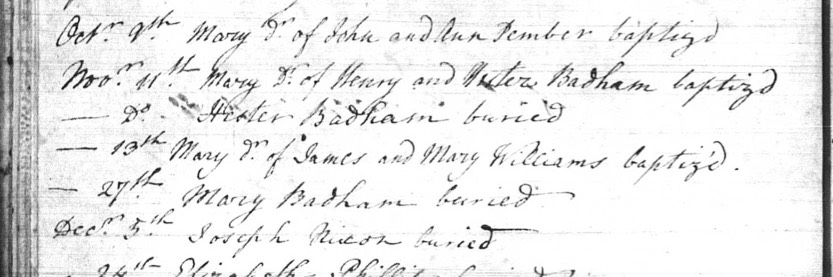 Octr. 9th Mary Dr. of John and Ann Pember baptiz'd
Novr. 11th Mary Dr. of Henry and Hester Badham baptiz'd
— Do. Hester Badham buried
— 13th Mary Dr. of James and Mary Williams baptiz'd.
— 27th Mary Badham buried
Decr. 5th Joseph Nixon buried
24th Elizabeth